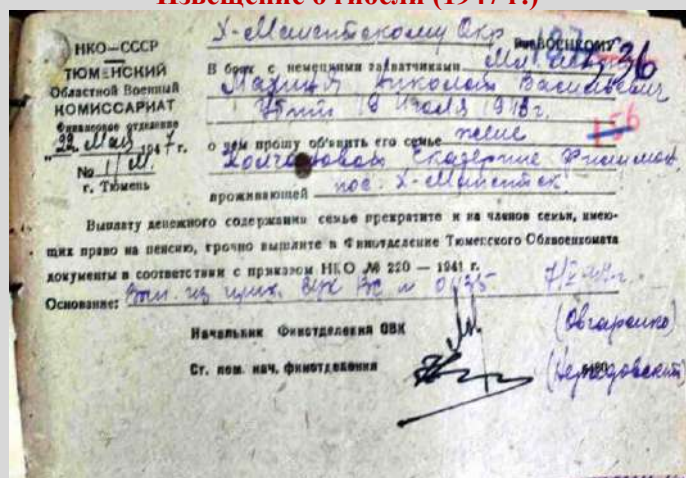 Извещение о гибели (1947 г.)
НКО—СССР
ТЮМЕНСКИЙ
Областной Военный
КОМИССАРИАТ
Финансовое отделение
"22" Мая 1947 г.
№ 1/М.
г. Тюмень
Х-Мансийскому Окр ВОЕНКОМУ
36
В боях с немецкими захватчиками Мл.
Николай Васильевич
Убит 19 Июля 1943 г.
156
о чем прошу объявить его семье жене
Екатерине
проживающей пос. Х-Мансийск
Выплату денежного содержания семье прекратите и на членов семьи, имею-
щих право на пенсию, срочно вышлите в Финотделение Тюменского Облвоенкомата
документы в соответствии с приказом НКО № 220 — 1941 г.
Основание: Вып. из прик. ВС №
Начальник Финотделения ОВК
Ст. пом. нач. финотделения